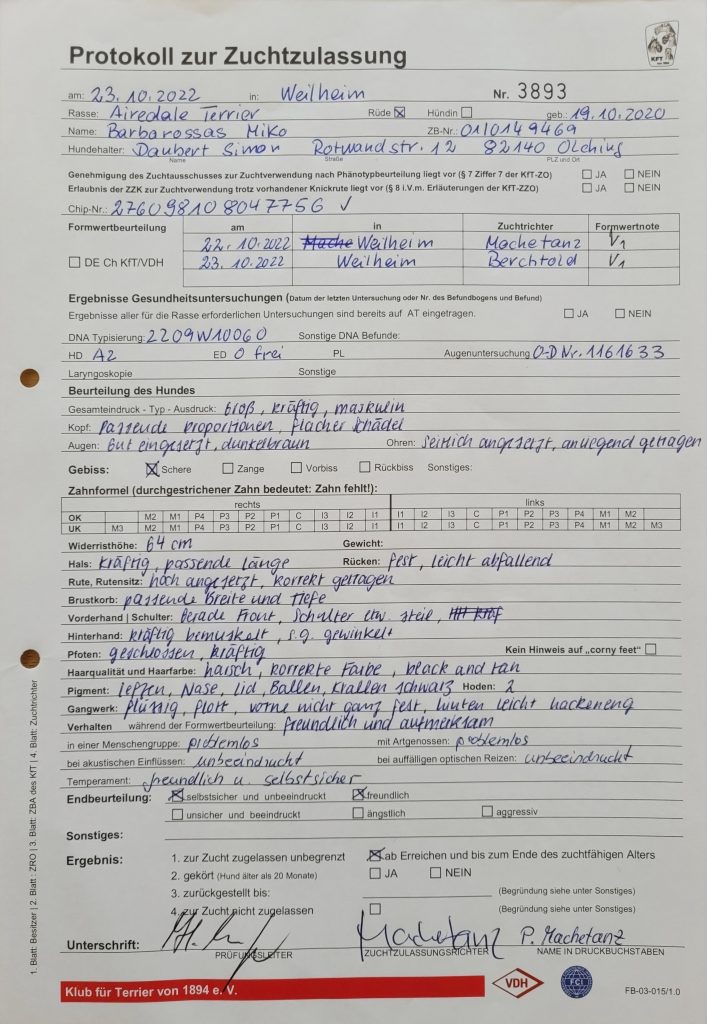 Protokoll zur Zuchtzulassung
KFT
am: 23.10.2022 in: Weilheim Nr. 3893
Rasse: Airedale Terrier Rüde ☒ Hündin ☐ geb.: 19.10.2020
Name: Barbarossas Miko ZB-Nr.: 010149469
Hundehalter: Daubert Simon Rotwandstr. 12 82140 Olching
Name Straße PLZ und Ort
Genehmigung des Zuchtausschusses zur Zuchtverwendung nach Phänotypbeurteilung liegt vor (§ 7 Ziffer 7 der KfT-ZO) ☐ JA ☐ NEIN
Erlaubnis der ZZK zur Zuchtverwendung trotz vorhandener Knickrute liegt vor (§ 8 i.V.m. Erläuterungen der KfT-ZZO) ☐ JA ☐ NEIN
Chip-Nr.: 276098108047756 ✓
Formwertbeurteilung am in Zuchtrichter Formwertnote
22.10.2022 Mache Weilheim Machetanz V1
☐ DE Ch KfT/VDH 23.10.2022 Weilheim Berchtold V1
Ergebnisse Gesundheitsuntersuchungen (Datum der letzten Untersuchung oder Nr. des Befundbogens und Befund)
Ergebnisse aller für die Rasse erforderlichen Untersuchungen sind bereits auf AT eingetragen. ☐ JA ☐ NEIN
DNA Typisierung: 2209W10060 Sonstige DNA Befunde:
HD A2 ED 0 frei PL Augenuntersuchung O-D Nr. 1161633
Laryngoskopie Sonstige
Beurteilung des Hundes
Gesamteindruck - Typ - Ausdruck: Groß, kräftig, maskulin
Kopf: Passende Proportionen, flacher Schädel
Augen: Gut eingesetzt, dunkelbraun Ohren: Seitlich angesetzt, anliegend getragen
Gebiss: ☒ Schere ☐ Zange ☐ Vorbiss ☐ Rückbiss Sonstiges:
Zahnformel (durchgestrichener Zahn bedeutet: Zahn fehlt!):
rechts links
OK M2 M1 P4 P3 P2 P1 C I3 I2 I1 I1 I2 I3 C P1 P2 P3 P4 M1 M2
UK M3 M2 M1 P4 P3 P2 P1 C I3 I2 I1 I1 I2 I3 C P1 P2 P3 P4 M1 M2 M3
Widerristhöhe: 64 cm Gewicht:
Hals: kräftig, passende Länge Rücken: fest, leicht abfallend
Rute, Rutensitz: hoch angesetzt, korrekt getragen
Brustkorb: passende Breite und Tiefe
Vorderhand | Schulter: Gerade Front, Schulter etw. steil,
Hinterhand: kräftig bemuskelt, s.g. gewinkelt
Pfoten: geschlossen, kräftig Kein Hinweis auf „corny feet“ ☐
Haarqualität und Haarfarbe: harsch, korrekte Farbe, black and tan
Pigment: Lefzen, Nase, Lid, Ballen, Krallen schwarz Hoden: 2
Gangwerk: flüssig, flott, vorne nicht ganz fest, hinten leicht hackeneng
Verhalten während der Formwertbeurteilung: freundlich und aufmerksam
in einer Menschengruppe: problemlos mit Artgenossen: problemlos
bei akustischen Einflüssen: unbeeindruckt bei auffälligen optischen Reizen: unbeeindruckt
Temperament: freundlich u. selbstsicher
Endbeurteilung: ☒ selbstsicher und unbeeindruckt ☒ freundlich
☐ unsicher und beeindruckt ☐ ängstlich ☐ aggressiv
Sonstiges:
Ergebnis: 1. zur Zucht zugelassen unbegrenzt ☒ ab Erreichen und bis zum Ende des zuchtfähigen Alters
2. gekört (Hund älter als 20 Monate) ☐ JA ☐ NEIN
3. zurückgestellt bis: (Begründung siehe unter Sonstiges)
4. zur Zucht nicht zugelassen ☐ (Begründung siehe unter Sonstiges)
Unterschrift: Machetanz P. Machetanz
PRÜFUNGSLEITER ZUCHTZULASSUNGSRICHTER NAME IN DRUCKBUCHSTABEN
Klub für Terrier von 1894 e. V. VDH FCI FB-03-015/1.0
1. Blatt: Besitzer | 2. Blatt : ZRO | 3. Blatt: ZBA des KfT | 4. Blatt: Zuchtrichter